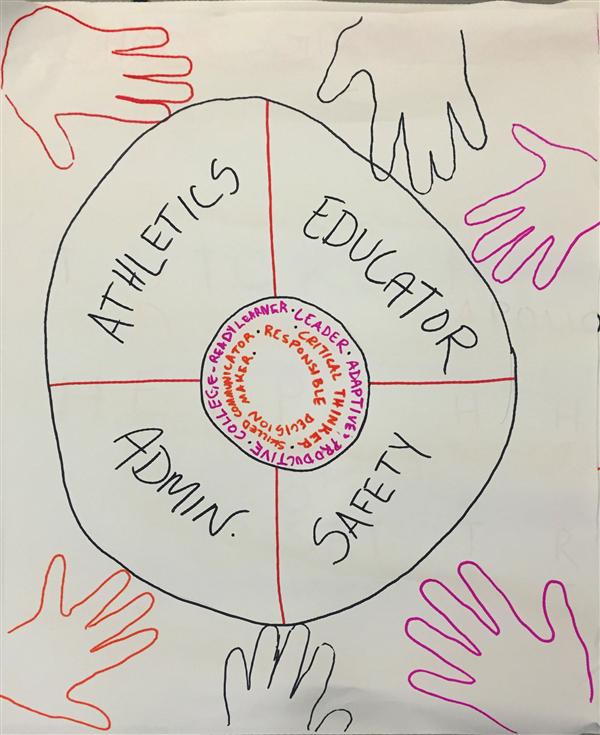 ATHLETICS
EDUCATOR
COLLEGE-READY LEARNER · LEADER · ADAPTIVE & PRODUCTIVE ·
CRITICAL THINKER · SKILLED COMMUNICATOR ·
RESPONSIBLE DECISION MAKER.
ADMIN.
SAFETY